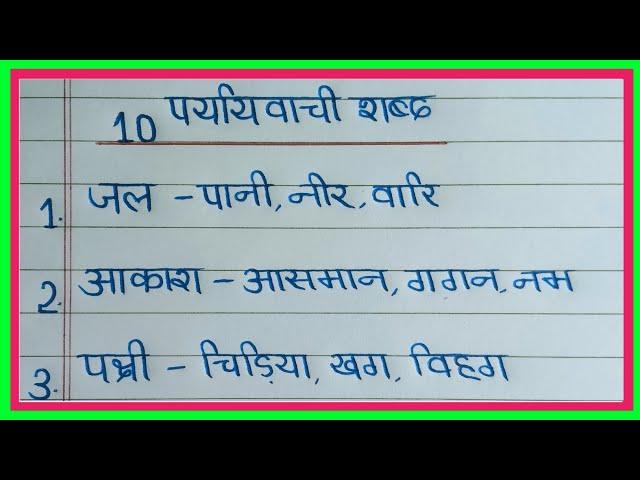 10 पर्यायवाची शब्द
1. जल - पानी, नीर, वारि
2. आकाश - आसमान, गगन, नभ
3. पक्षी - चिड़िया, खग, विहग